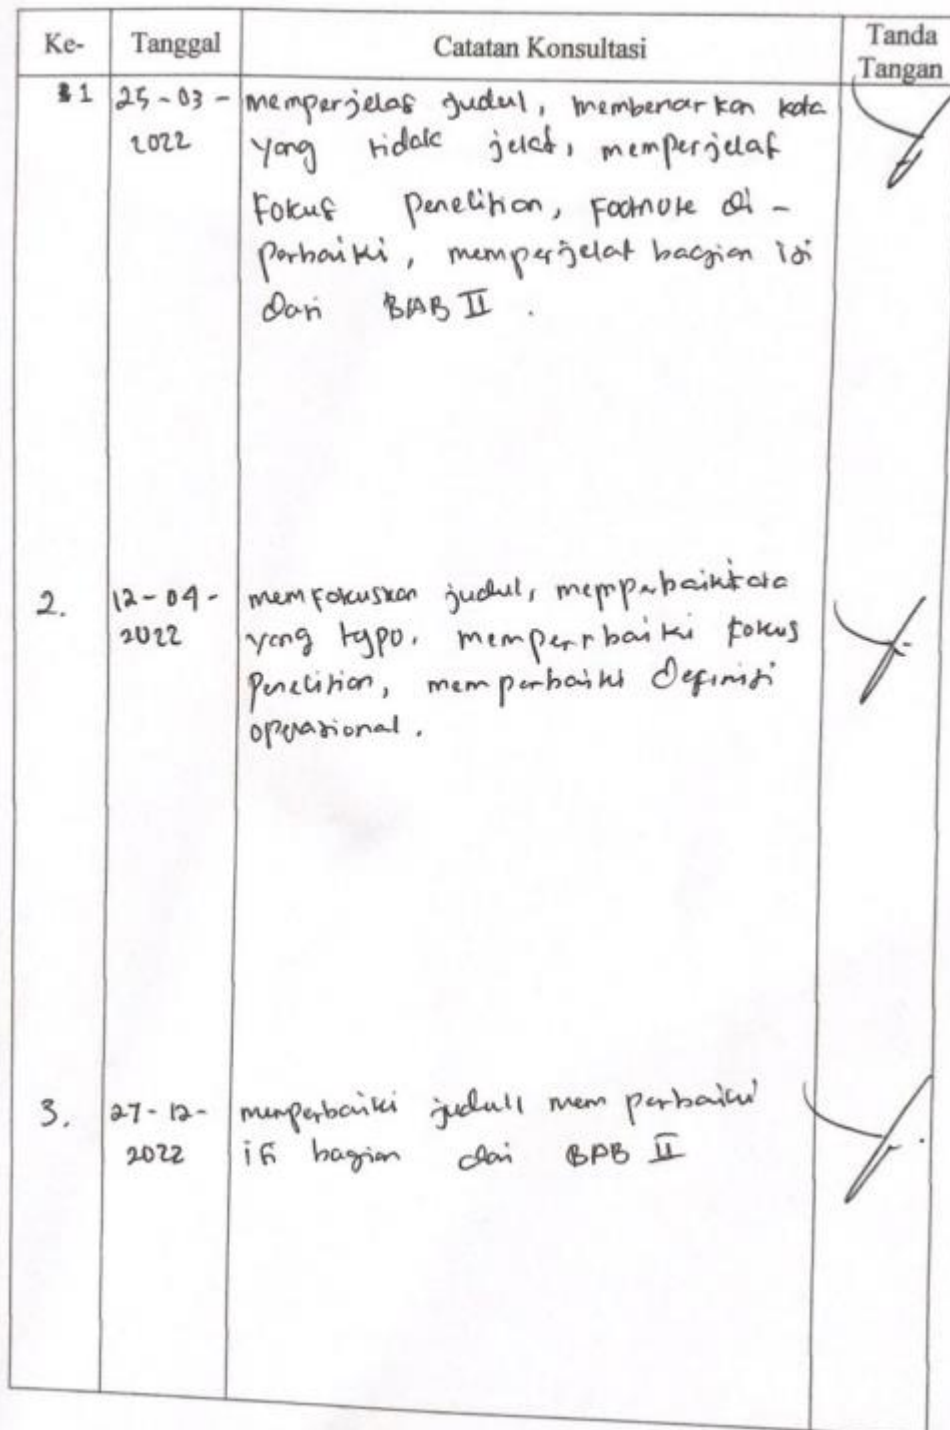 Ke- Tanggal Catatan Konsultasi Tanda Tangan
1 25-03-2022 memperjelas judul, membenarkan kata
yang tidak jelas, memperjelas
Fokus Penelitian, Footnote di-
perbaiki, memperjelas bagian isi
dari BAB II.
2. 12-04-2022 memfokuskan judul, memperbaiki kata
yang typo, memperrbaiki fokus
Penelitian, memperbaiki Definisi
operasional.
3. 27-12-2022 memperbaiki judul, memperbaiki
isi bagian dari BAB II